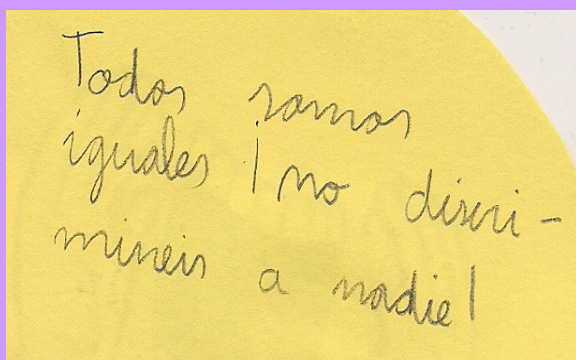 Todos somos
iguales ¡no discri-
mineis a nadie!